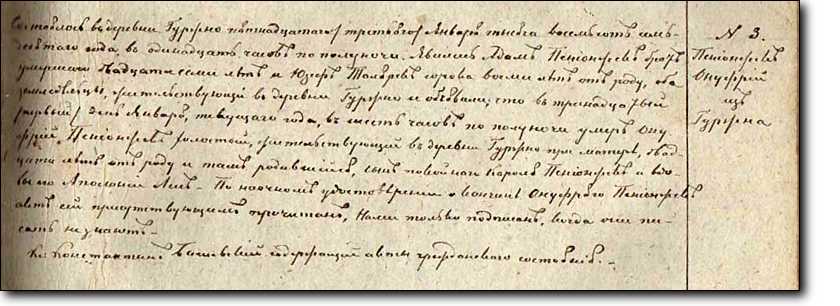 Состоялось въ деревни Гуржно пятнадцатаго / третьяго / Января тысяча восемьсотъ семь-
десятаго года, въ одинадцать часовъ по полуночи. Явились Адамъ Пенюнжекъ братъ
умершаго двадцати семи лѣтъ и Юзефъ сорока восьми лѣтъ отъ роду, оба
жительствующiи въ деревни Гуржно и объявили, что въ тринадцатый
/первый/ день Января, текущаго года, въ шесть часовъ по полуночи умеръ Ону-
фрiй Пенюнжекъ холостой, жительствующiй въ деревни Гуржно при матерѣ, двад-
цати лѣтъ отъ роду и тамъ родившiйся, сынъ покойнаго Кароля Пенюнжекъ и вдо-
вы по Аполонiи. По наочномъ удостовѣренiи о кончинѣ Онуфрего Пенюнжекъ
актъ сей присутствующимъ прочитанъ, Нами только подписанъ, когда они пи-
сать незнаютъ.
Кс. Константинъ содержащiй акты гражданскаго состоянiя.
N 3.
Пенюнжекъ
Онуфрiй
изъ
Гуржна